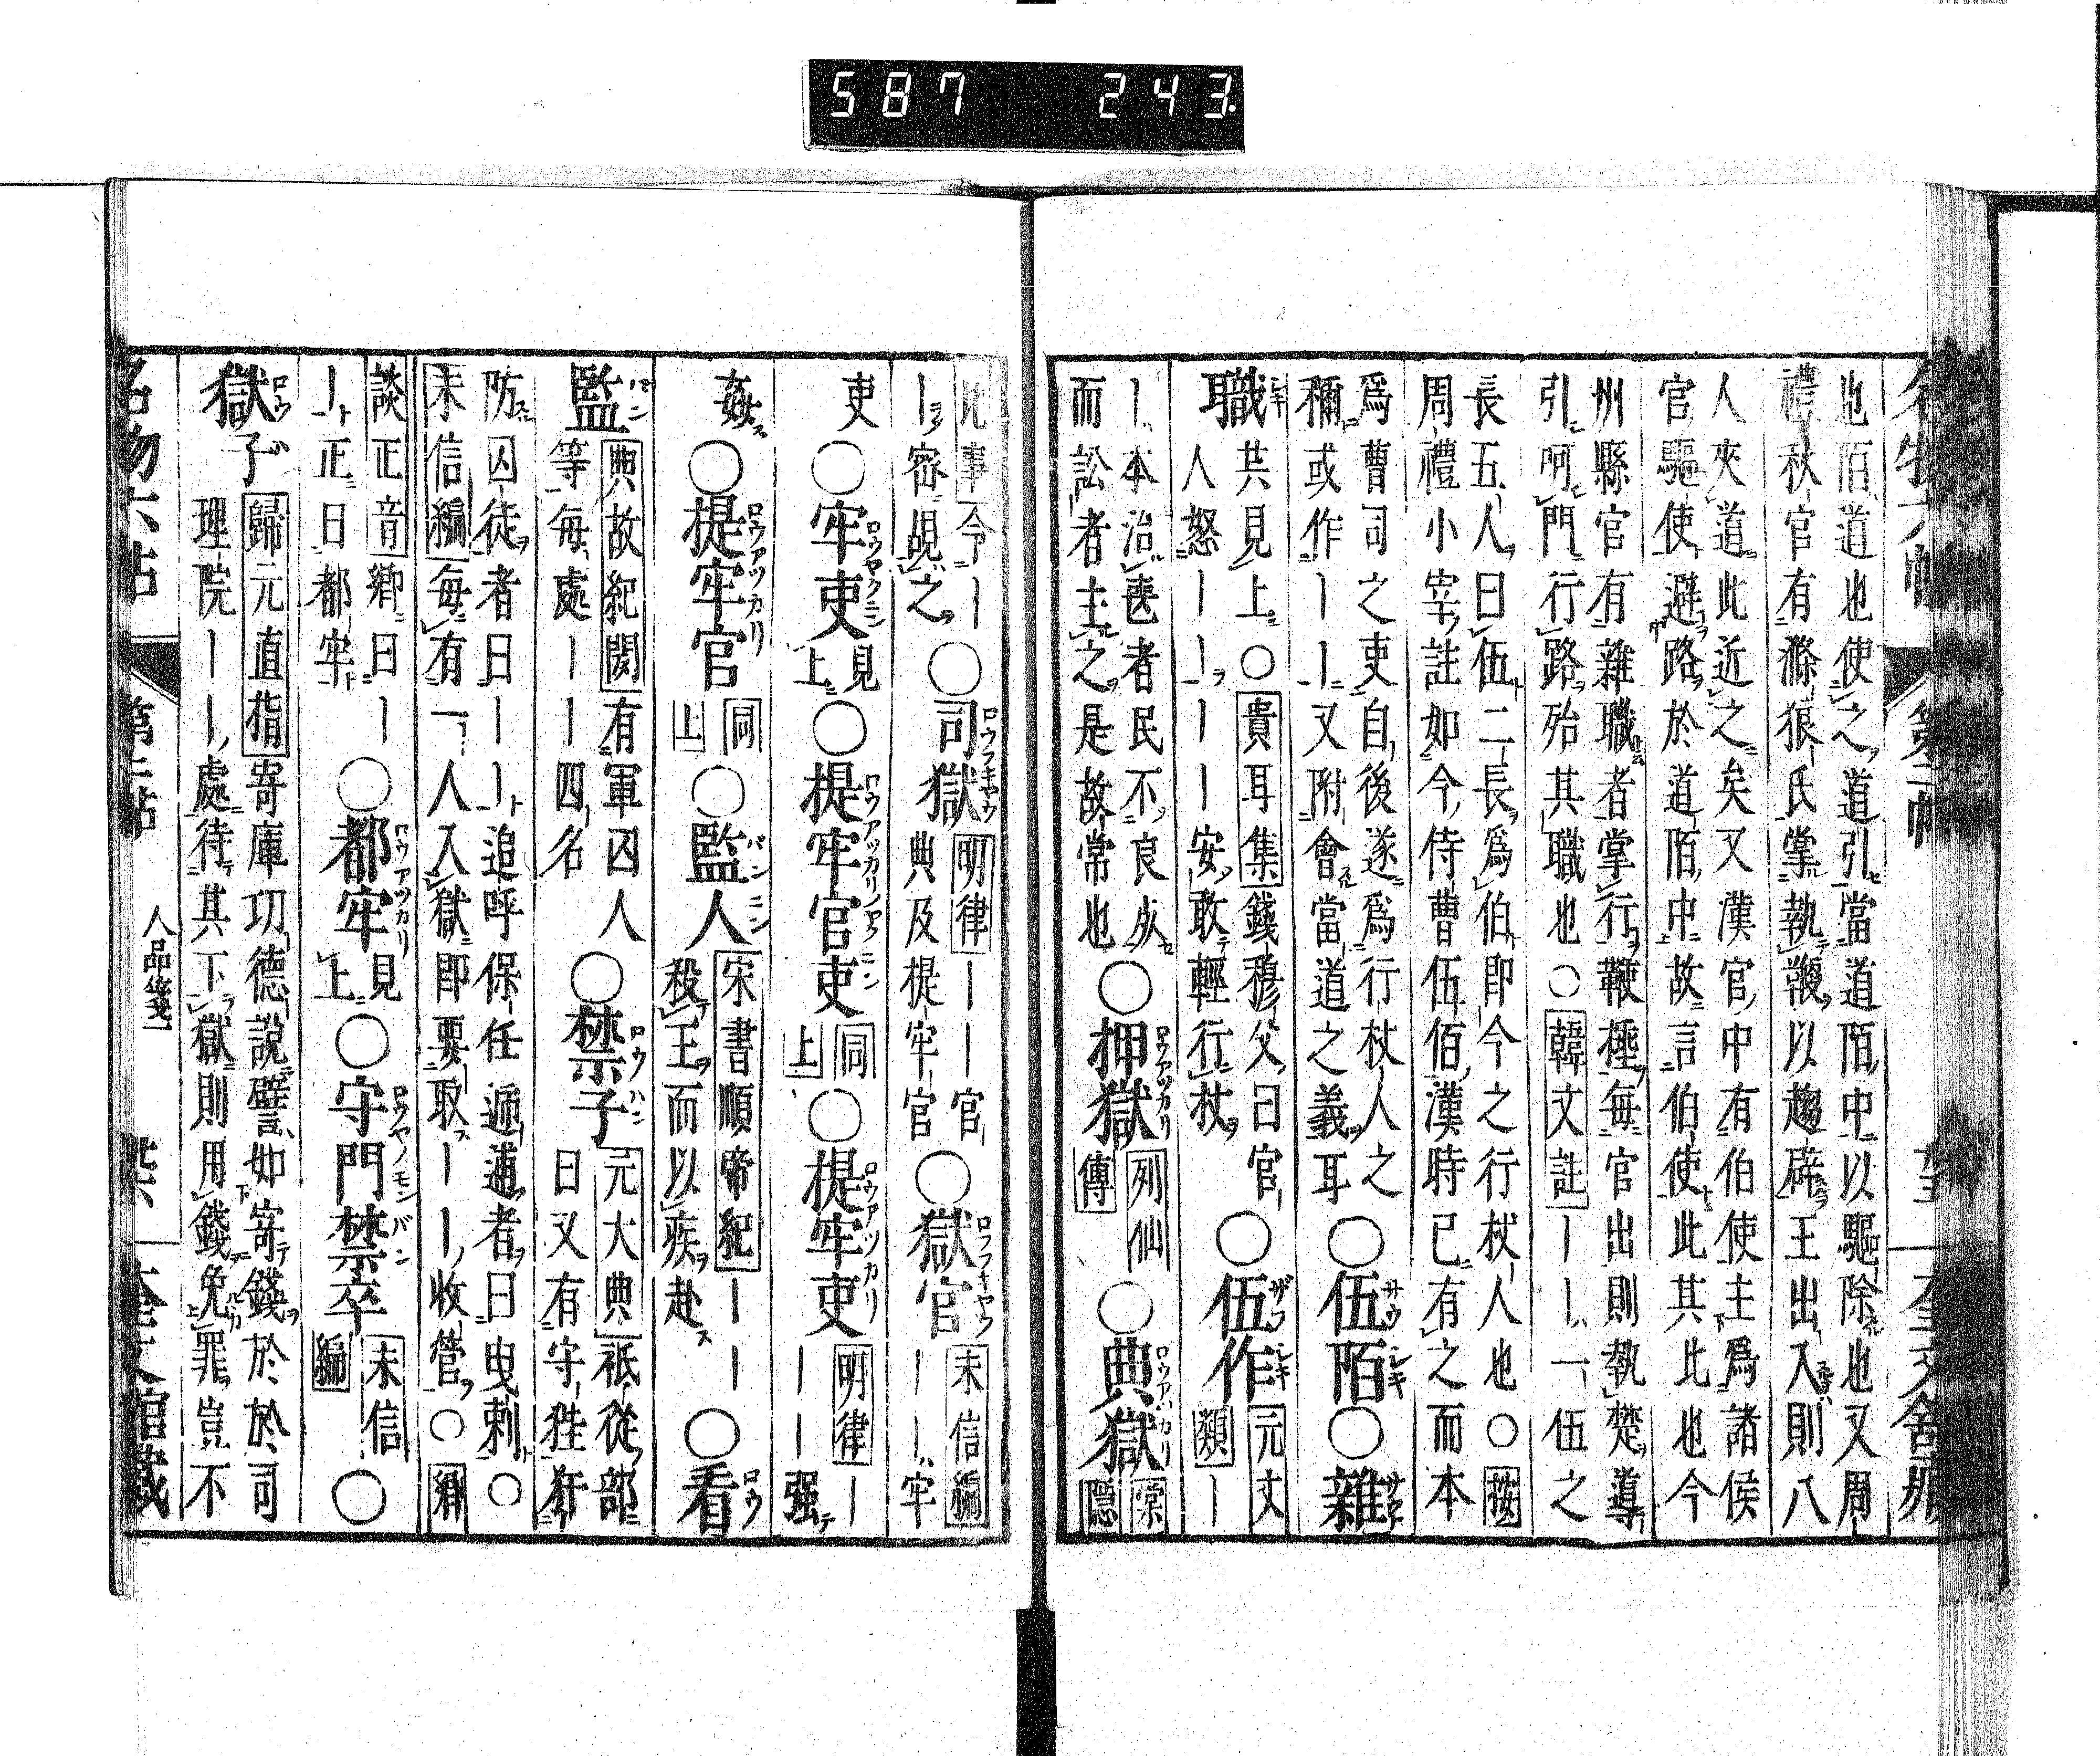 587 243
也陌道也使之道引當道陌中以驅除也又周
禮秋官有滌狼氏掌執鞭以趨辟王出入則八
人夾道此近之矣又漢官中有伯使主爲諸侯
官驅使避路於道陌中故言伯使此其比也今
州縣官有雜職者掌行鞭棰每官出則執楚導
引呵門行路殆其職也○韓文註一一一伍之
長五人曰伍二長爲伯即今之行杖人也○按
周禮小宰註如今侍曹伍佰漢時已有之而本
爲曹司之吏自後遂爲行杖人之
稱或作一一又附會當道之義耳
○伍陌○雜
職
共見上○貴耳集錢穆父曰官
人怒一一一一安敢輕行杖
○伍作
元文
類一
一本治喪者民不良死
而訟者主之是故常也
○押獄
列仙
傳
○典獄
棠
隱
比事今一
一密覘之
○司獄
明律一一官
典及提牢官
○獄官
未信編
一一牢
吏○牢吏
見
上
○提牢官吏
同
上
○提牢吏
明律一
一一强
姦○提牢官
同
上
○監人
宋書順帝紀一一
殺王而以疾赴
○看
監
典故紀聞有軍囚人
等每處一一四名
○禁子
元大典祗從部
曰又有守狴犴
防囚徒者曰一一追呼保任逓逋者曰曳剌○
未信編每有一人入獄即要取一一收管○鄉
談正音鄉曰一
一正曰都牢
○都牢
見
上
○守門禁卒
未信
編
○
獄子
歸元直指寄庫功德說譬如寄錢於於司
理院一一一處待其下獄則用錢免罪豈不
名物六帖
第二帖
人品箋一